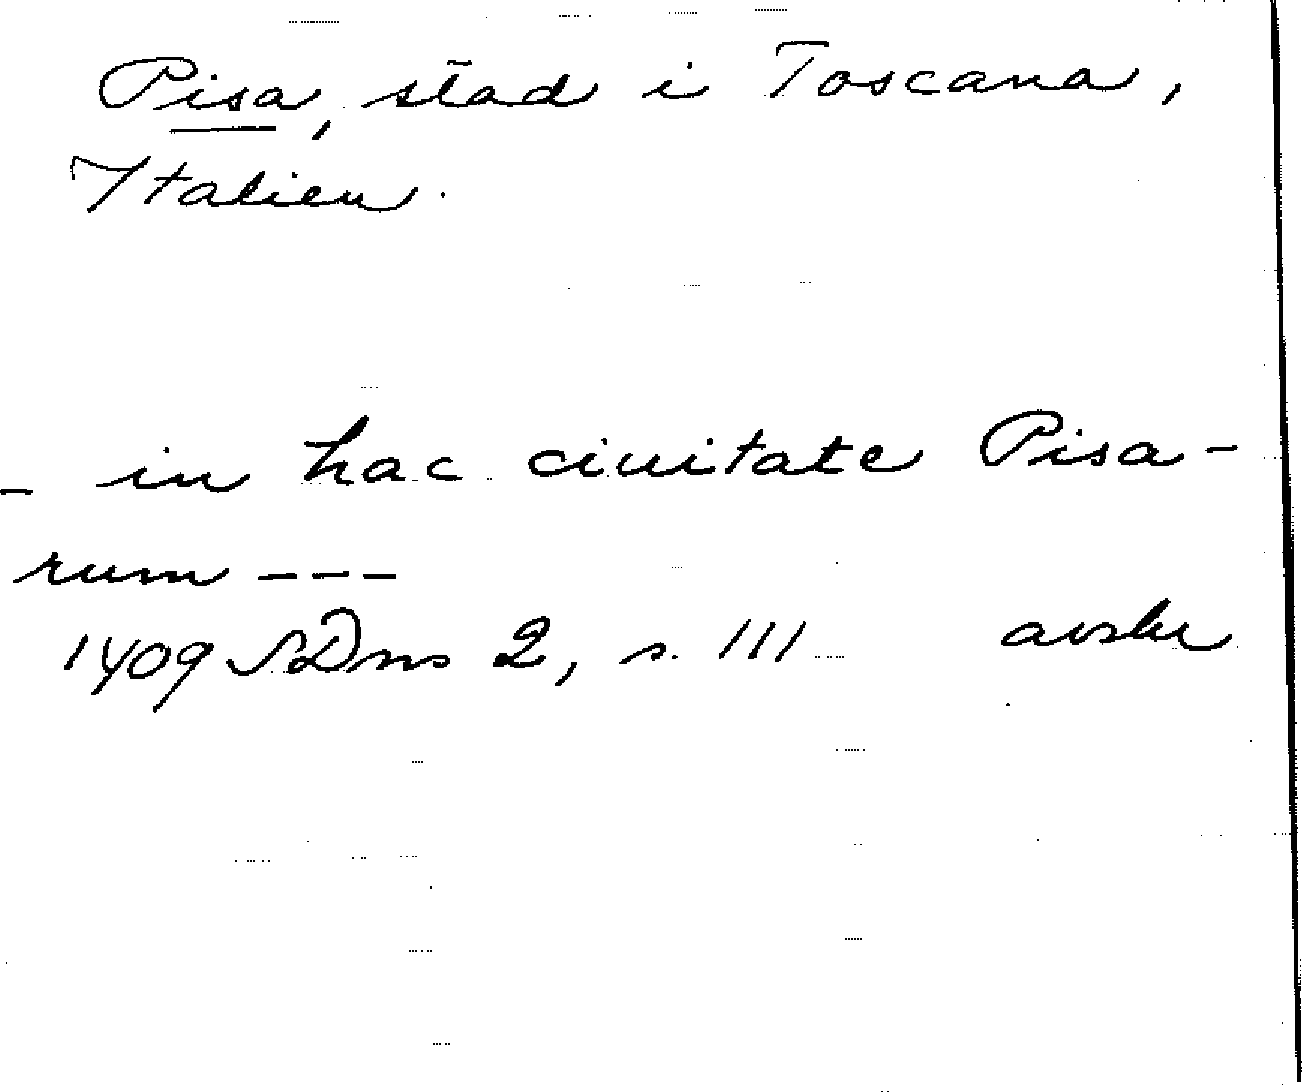 Pisa, stad i Toscana,
Italien.
- in hac ciuitate Pisa-
rum ---
1409 SDns 2, s. 111 avskr